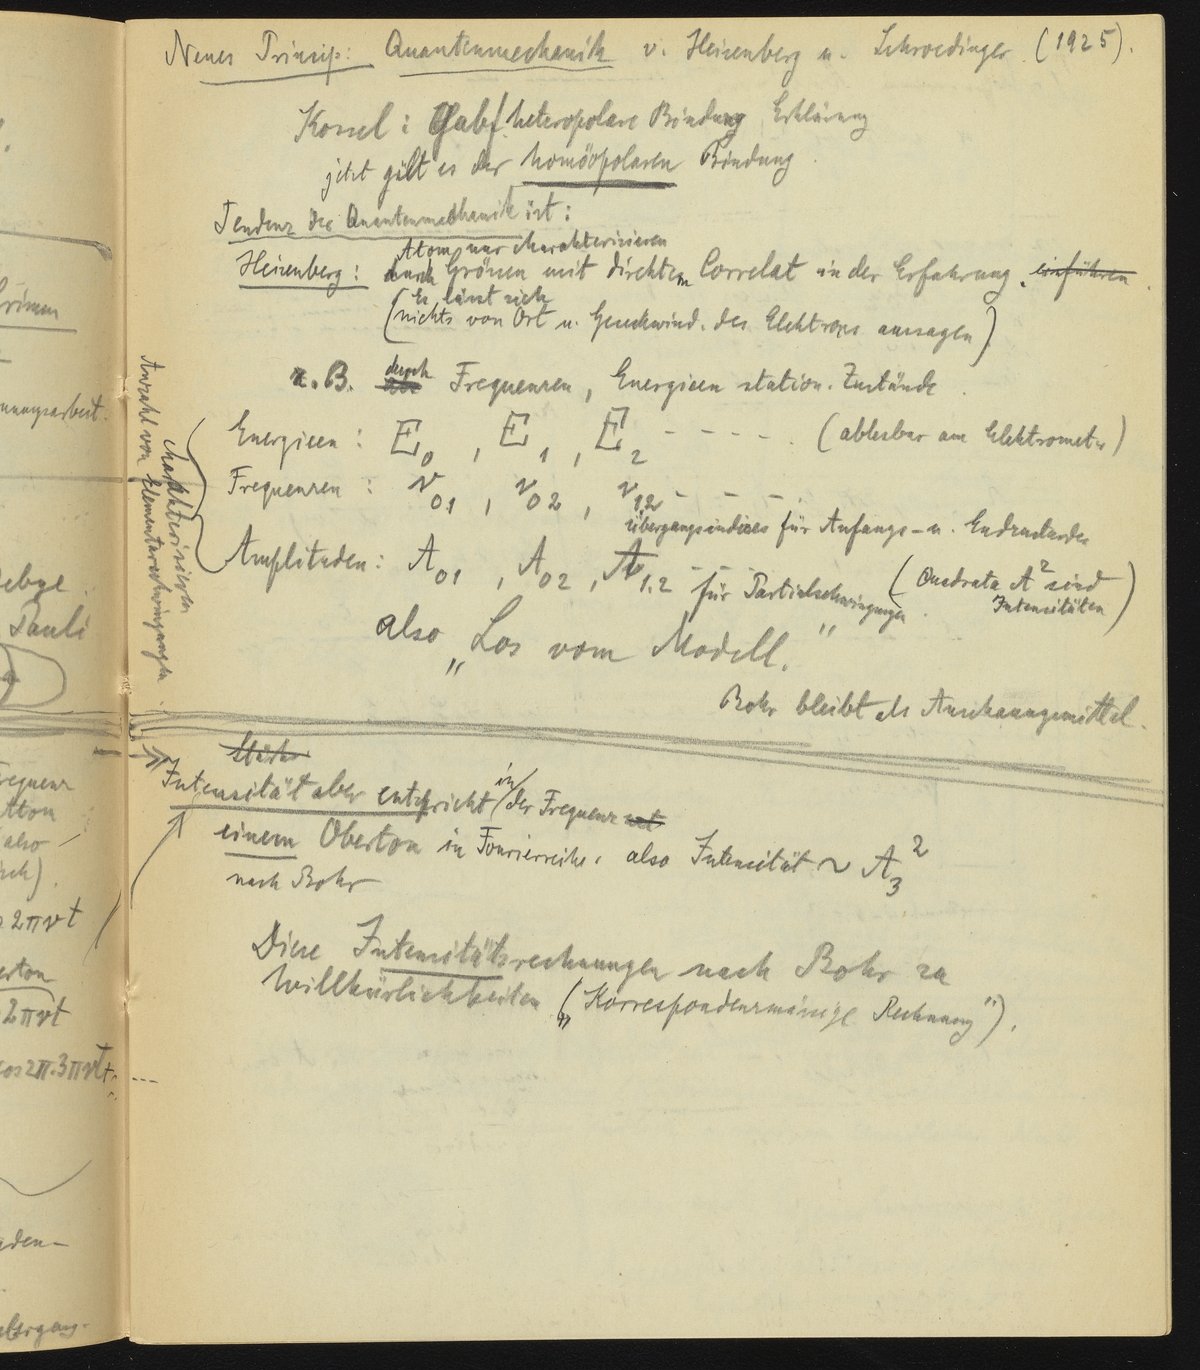 Neues Prinzip: Quantenmechanik v. Heisenberg u. Schroedinger (1925).
Kossel: Gab f. heteropolare Bindung Erklärung
jetzt gilt es der homöopolaren Bindung.
Tendenz der Quantenmechanik ist:
Atom nur charakterisieren
Heisenberg: durch Grössen mit direktem Correlat in der Erfahrung. einführen.
(Es lässt sich
nichts von Ort u. Geschwind. des Elektrons aussagen)
z.B. durch Frequenzen, Energieen station. Zustände.
Energieen: E0, E1, E2 - - - - . (ablesbar am Elektrometer)
Frequenzen: ν01, ν02, ν12 - - - .
Übergangsindices für Anfangs- u. Endzustandes
Amplituden: A01, A02, A1.2 - - für Partialschwingungen. (Quadrate A² sind Intensitäten)
Anzahl von Elementarschwingungen
charakterisieren
also „Los vom Modell."
Bohr bleibt als Anschauungsmittel.
Stärke
Intensität aber entspricht in der Frequenz
einem Oberton in Fourierreihe, also Intensität ~ A3²
nach Bohr
Diese Intensitätsrechnungen nach Bohr zu
Willkürlichkeiten („Korrespondenzmässige Rechnung").
rimm
nungsarbeit.
ebye
Pauli
requenz
tton
also
sch).
2πνt
erton
2πνt
cos2π.3πνt+ ...
den-
bergang-